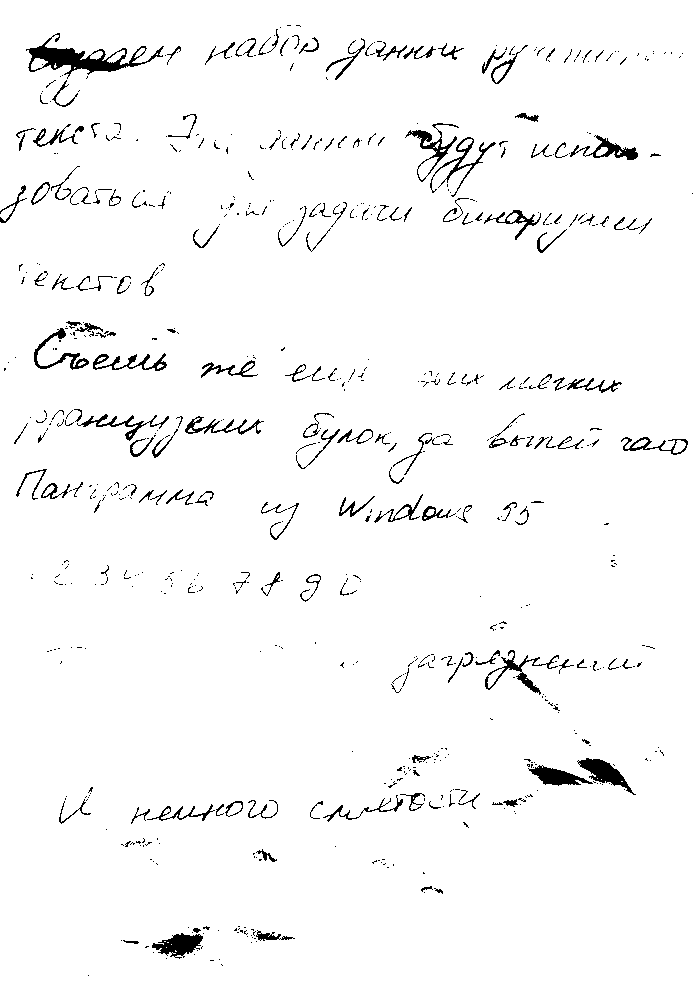 Создаем набор данных рукописного
текста. Эти данные будут исполь-
зоваться для задачи бинаризации
текстов
Съешь же ещё этих мягких
французских булок, да выпей чаю
Панграмма из Windows 95
2 3 4 5 6 7 8 9 0
загрязнений
И немного смятости